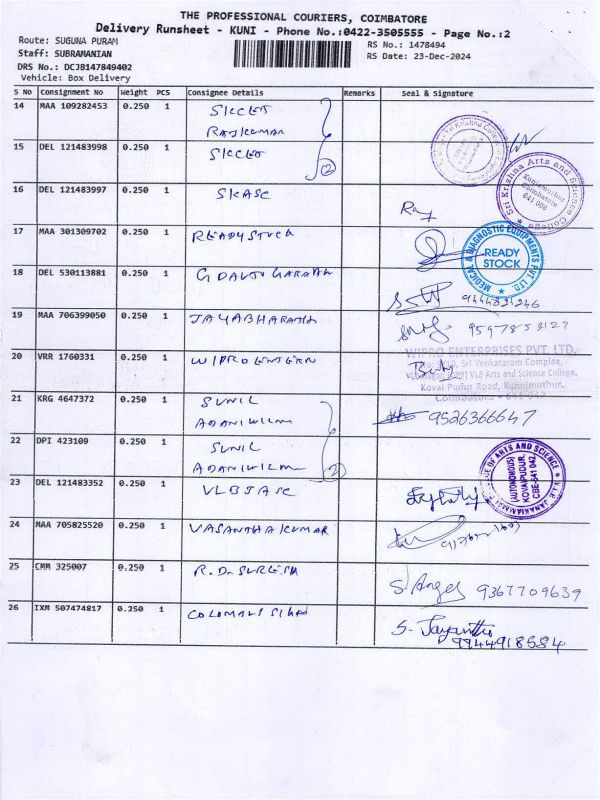 THE PROFESSIONAL COURIERS, COIMBATORE
Delivery Runsheet - KUNI - Phone No.:0422-3505555 - Page No.:2
Route: SUGUNA PURAM
RS No.: 1478494
Staff: SUBRAMANIAN
RS Date: 23-Dec-2024
DRS No.: DCJB147849402
Vehicle: Box Delivery
S No Consignment No Weight PCS Consignee Details Remarks Seal & Signature
14 MAA 109282453 0.250 1 SKCET
RAJKUMAR
15 DEL 121483998 0.250 1 SKCET
2
16 DEL 121483997 0.250 1 SKASC
Sri Krishna Arts and Science College
Kuniamuthur
Coimbatore
641 008
17 MAA 301309702 0.250 1 READYSTOCK
MEDICAL & DIAGNOSTIC EQUIPMENTS PVT. LTD.
READY STOCK
18 DEL 530113881 0.250 1
19 MAA 706399050 0.250 1 JAYABHARATH
WIPRO ENTERPRISES PVT. LTD.
Sri Venkataram Complex,
VLB Arts and Science College,
Kovai Pudur Road, Kuniamuthur,
Coimbatore - 641
20 VRR 1760331 0.250 1 WIPRO
21 KRG 4647372 0.250 1 SUNIL
ADANIWILM
9526366647
22 DPI 423109 0.250 1 SUNIL
ADANIWILM
2
23 DEL 121483352 0.250 1 VLBJASC
COLLEGE OF ARTS AND SCIENCE
V.L.B. JANAKIAMMAL
(AUTONOMOUS)
KOVAIPUDUR,
CBE-641 042
24 MAA 705825520 0.250 1 VASANTHAKUMAR
25 CMM 325007 0.250 1 R. D. SURESH
9367709639
26 IXM 507474817 0.250 1
S. Jayanthi
9944918584